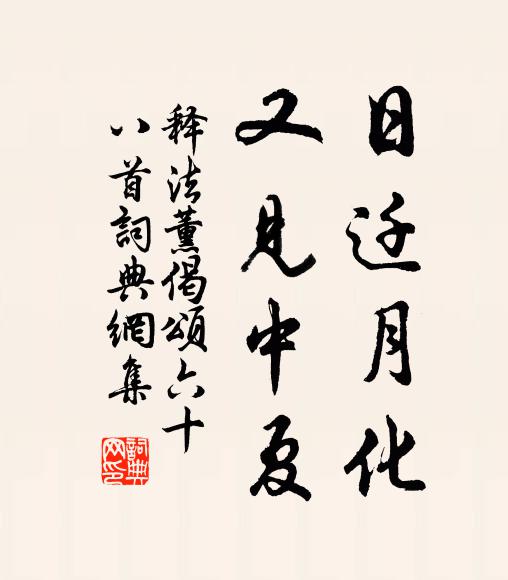 日迁月化
又见中夏
释法薰偈颂六十
八首詞典網集
詞典
网印